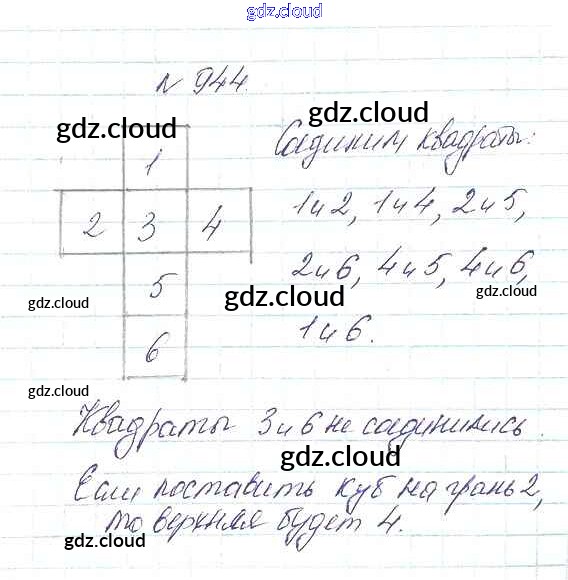 gdz.cloud
gdz.cloud
N 944
gdz.cloud
gdz.cloud
1
Соединим квадраты:
2 3 4
1 и 2, 1 и 4, 2 и 5,
5
2 и 6, 4 и 5, 4 и 6,
gdz.cloud gdz.cloud gdz.cloud
6
1 и 6.
gdz.cloud
Квадраты 3 и 6 не соединились.
gdz.cloud
Если поставить куб на грань 2,
то верхняя будет 4.
gdz.cloud gdz.cloud